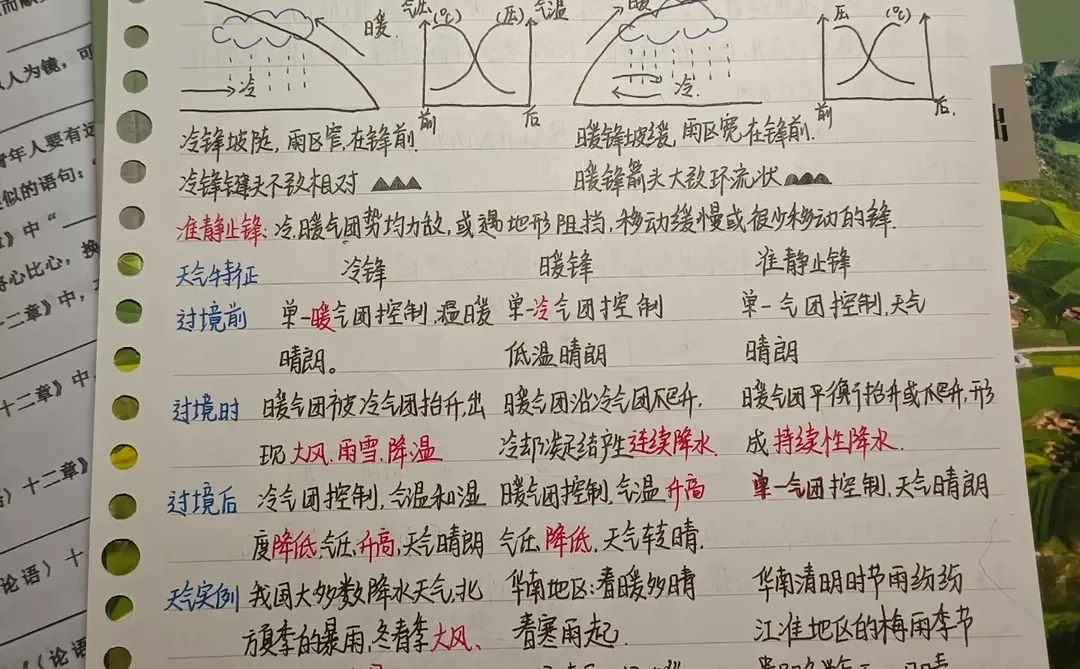 而献
人为镜，可
青年人要有远
类似的语句：
》中“
将心比心，换
二章》中，
十二章》中，
》十二章》
论语》十
《论语
暖.
气压 (℃) (压) 气温
冷
前 后
暖
冷.
压 (℃)
前 后.
冷锋坡陡，雨区窄，在锋前.
暖锋坡缓，雨区宽，在锋前.
冷锋键头不致相对
暖锋箭头大致环流状
准静止锋：冷、暖气团势均力敌，或遇地形阻挡，移动缓慢或很少移动的锋.
天气特征 冷锋 暖锋 准静止锋
过境前 单一暖气团控制，温暖 单一冷气团控制 单一气团控制，天气
晴朗。 低温晴朗 晴朗
过境时 暖气团被冷气团抬升，出 暖气团沿冷气团爬升， 暖气团平衡抬升或爬升，形
现大风、雨雪、降温 冷却凝结产生连续降水. 成持续性降水.
过境后 冷气团控制，气温和湿 暖气团控制，气温升高 单一气团控制，天气晴朗
度降低，气压升高，天气晴朗 气压降低，天气转晴.
天气实例 我国大多数降水天气，北 华南地区：春暖多晴 华南清明时节雨纷纷
方夏季的暴雨，冬春季大风、 春寒雨起. 江淮地区的梅雨季节